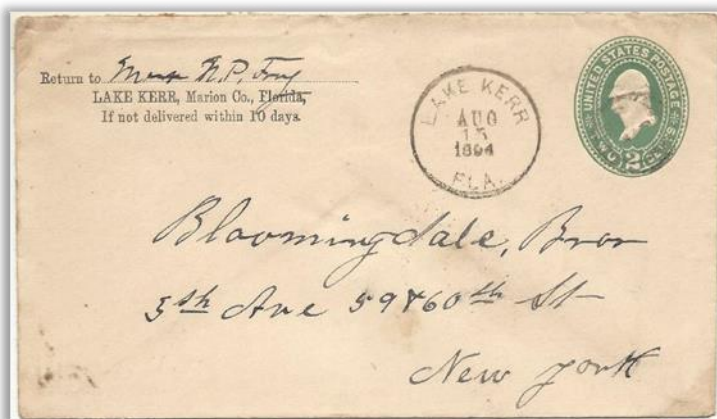 Return to Mrs N. P. Fry
LAKE KERR, Marion Co., Florida,
If not delivered within 10 days.
LAKE KERR
AUG
15
1894
FLA.
UNITED STATES POSTAGE
TWO 2 CENTS
Bloomingdale, Bros
5th Ave 59 & 60th St
New York